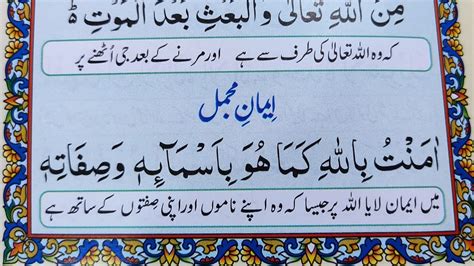 مِنَ اللهِ تَعَالٰى وَالْبَعْثِ بَعْدَ الْمَوْتِ ط
کہ وہ اللہ تعالیٰ کی طرف سے ہے اور مرنے کے بعد جی اُٹھنے پر
اِیمانِ مجمل
اٰمَنْتُ بِاللهِ كَمَا هُوَ بِاَسْمَآئِهٖ وَصِفَاتِهٖ
میں ایمان لایا اللہ پر جیسا کہ وہ اپنے ناموں اور اپنی صِفتوں کے ساتھ ہے